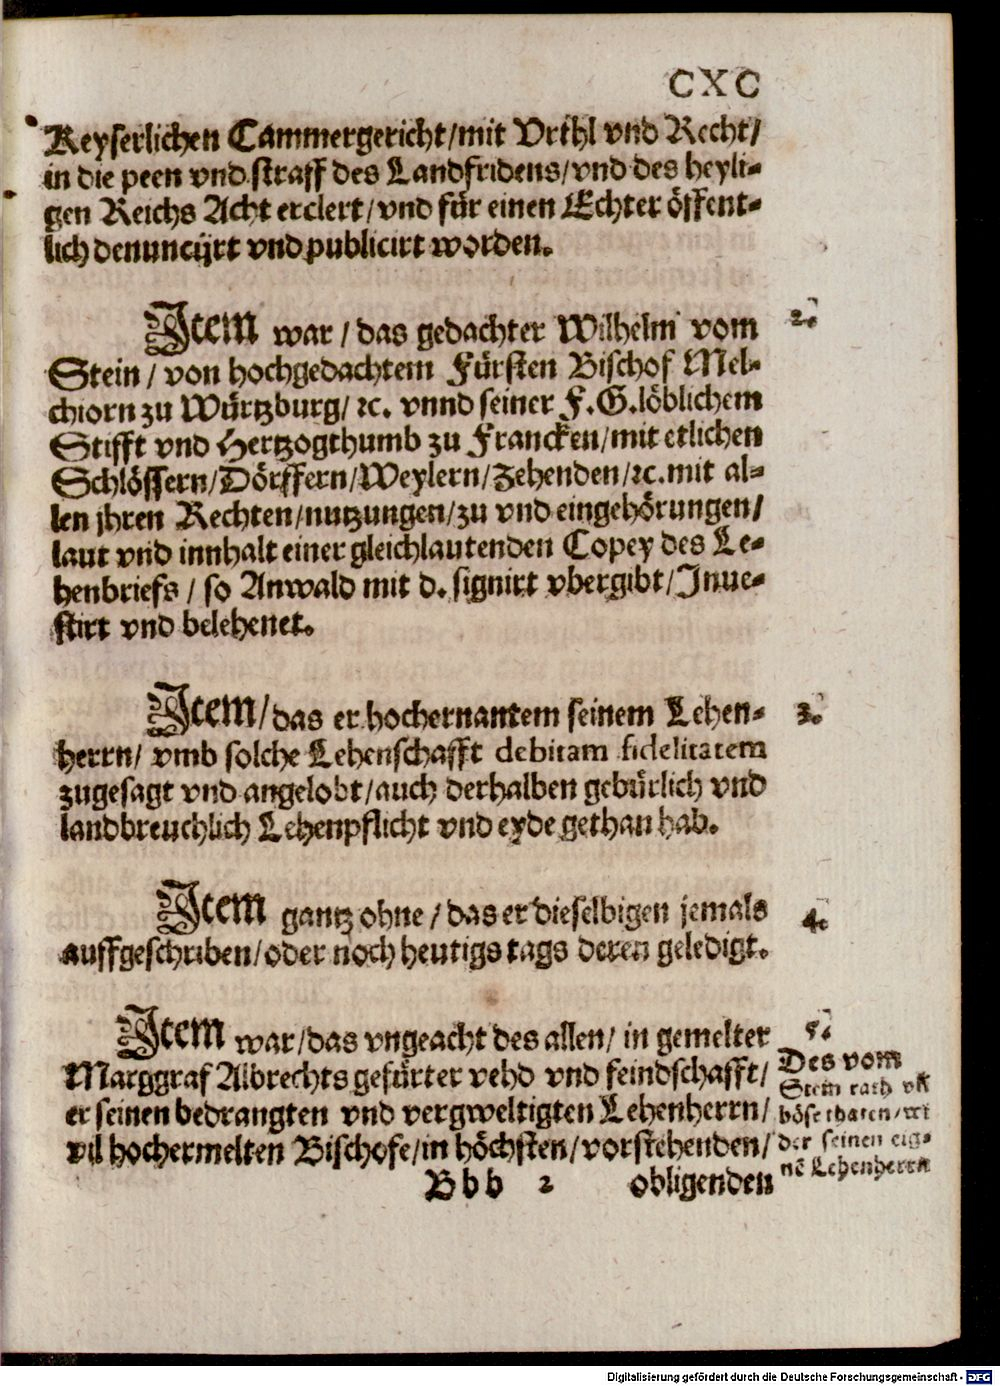 CXC
Keyserlichen Cammergericht/mit Vrthl vnd Recht/
in die peen vnd straff des Landfridens/vnd des heyli-
gen Reichs Acht erclert/vnd für einen Echter öffent-
lich denuncijrt vnd publicirt worden.
Item war / das gedachter Wilhelm vom
2.
Stein / von hochgedachtem Fürsten Bischof Mel-
chiorn zu Würtzburg/ ꝛc. vnnd seiner F.G. löblichem
Stifft vnd Hertzogthumb zu Francken/mit etlichen
Schlössern/Dörffern/Weylern/Zehenden/ꝛc. mit al-
len jhren Rechten/nutzungen/zu vnd eingehörungen/
laut vnd innhalt einer gleichlautenden Copey des Le-
henbriefs / so Anwald mit d. signirt vbergibt/Inue-
stirt vnd belehenet.
Item/das er hochernantem seinem Lehen-
3.
herrn/ vmb solche Lehenschafft debitam fidelitatem
zugesagt vnd angelobt/auch derhalben gebürlich vnd
landbreuchlich Lehenpflicht vnd eyde gethan hab.
Item gantz ohne / das er dieselbigen jemals
4.
auffgeschriben/oder noch heutigs tags deren geledigt.
Item war/das vngeacht des allen/ in gemelter
5.
Marggraf Albrechts gefürter vehd vnd feindschafft/
er seinen bedrangten vnd vergweltigten Lehenherrn/
vil hochermelten Bischofe/in höchsten/vorstehenden/
Des vom
Stein rath vñ
böse thaten/wi
der seinen eig-
nẽ Lehenherrn
Bbb 2 obligenden
Digitalisierung gefördert durch die Deutsche Forschungsgemeinschaft - DFG